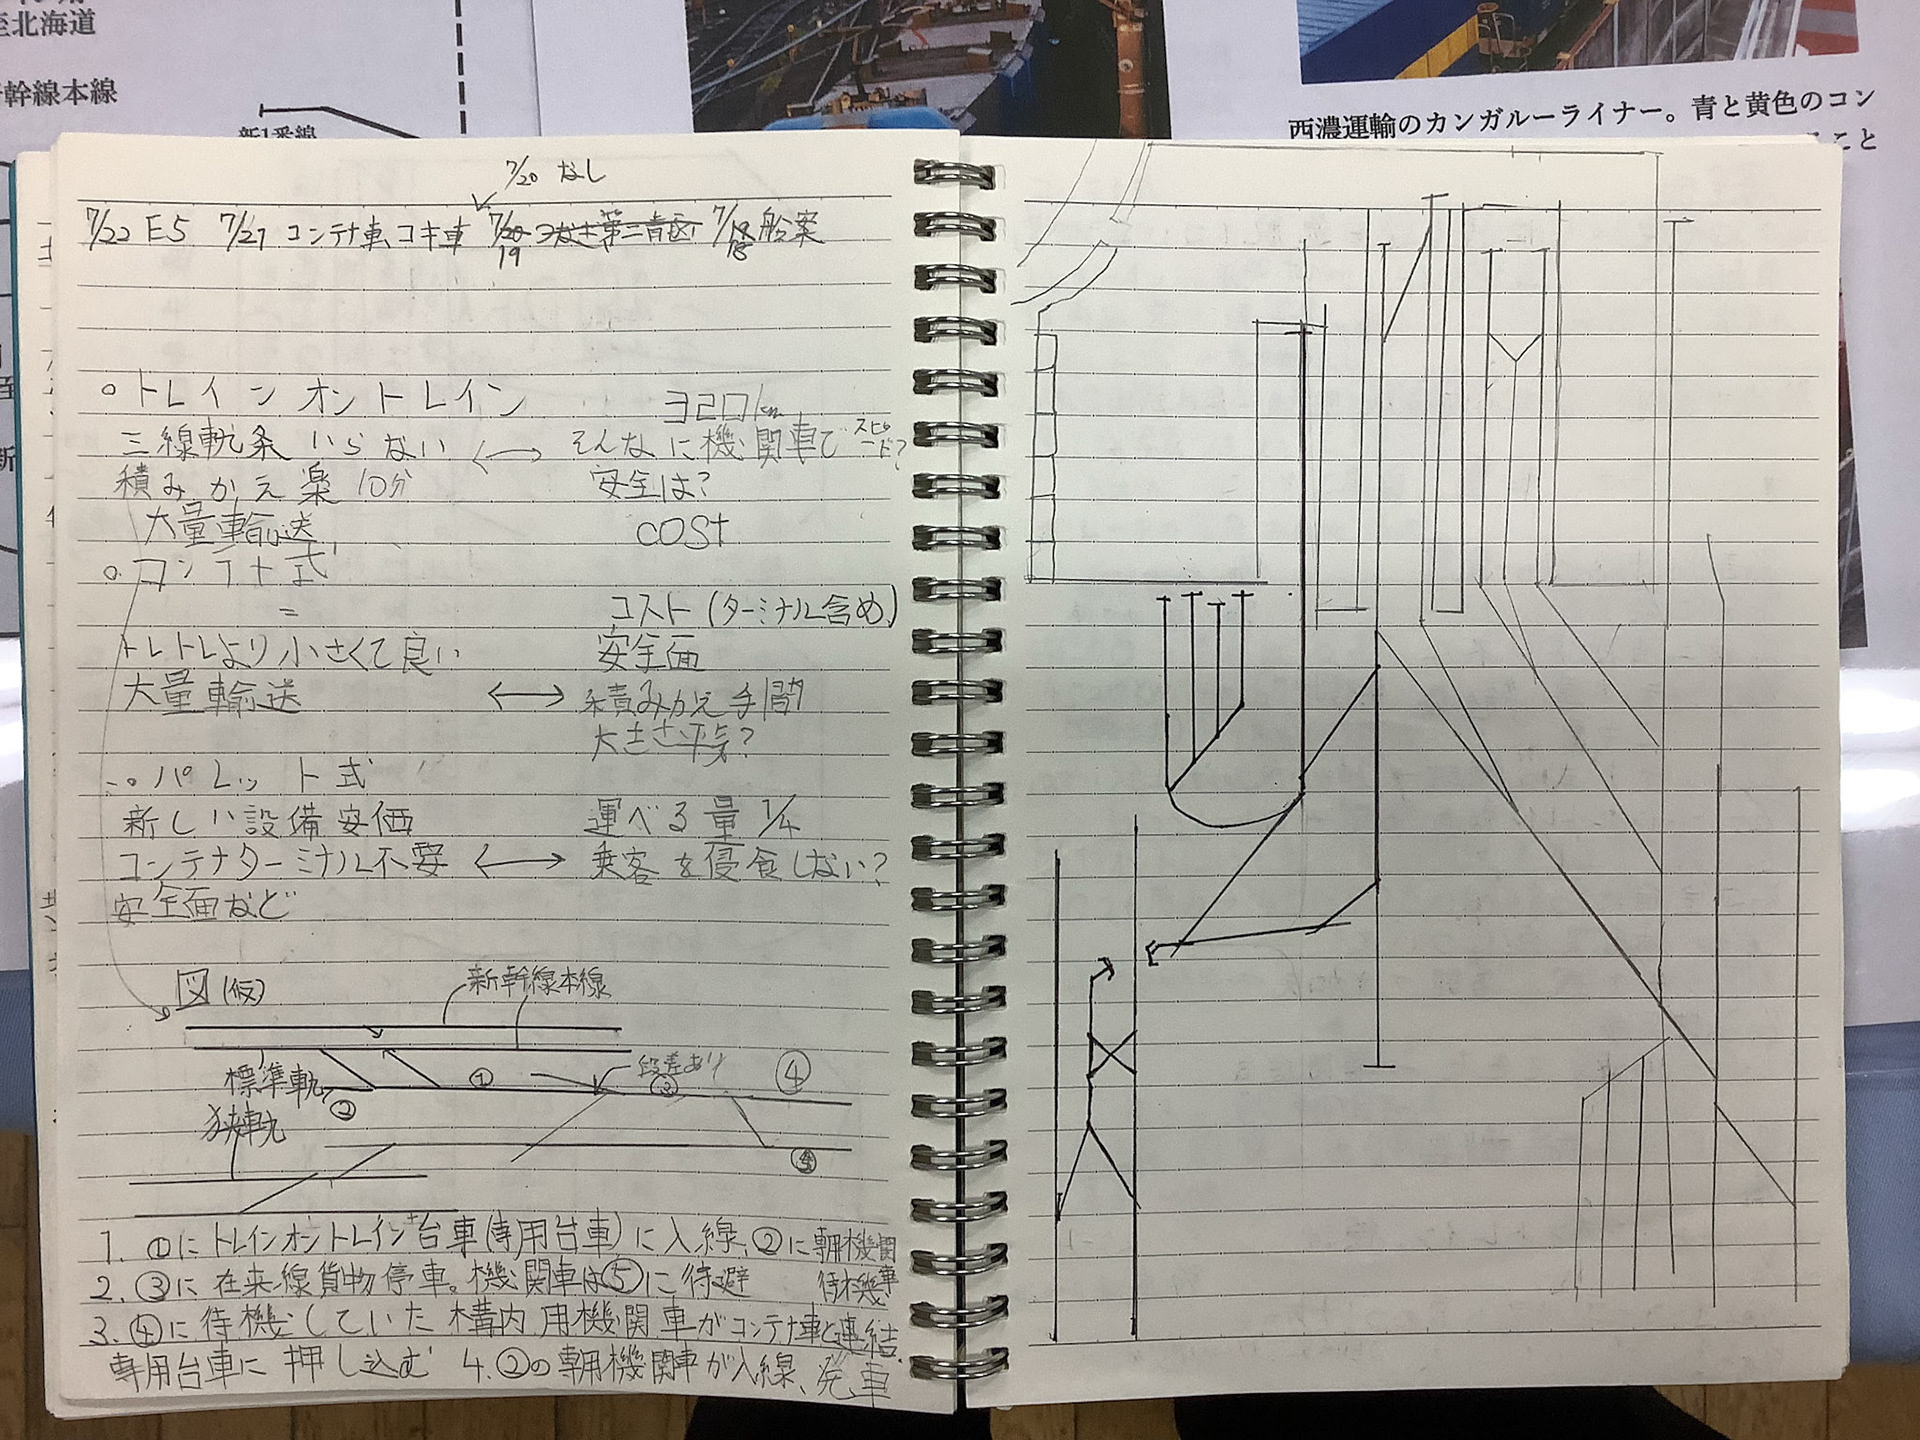 至北海道
幹線本線
新1番線
西濃運輸のカンガルーライナー。青と黄色のコン
こと
7/20 なし
7/22 E5 7/27 コンテナ車コキ車 7/19 7/18 船案
○トレインオントレイン 320km
三線軌条いらない ←→ そんなに機関車でスピード?
積みかえ楽10分 安全は?
大量輸送 COST
○コンテナ式
= コスト(ターミナル含め)
トレトレより小さくて良い 安全面
大量輸送 ←→ 積みかえ手間
大きさ平気?
○パレット式
新しい設備安価 運べる量1/4
コンテナターミナル不要 ←→ 乗客を侵食しない?
安全面など
図(仮) 新幹線本線
標準軌 ① 段差あり ③ ④
②
狭軌
⑤
1. ①にトレインオントレイン台車(専用台車)に入線、②に専用機関車待機
2. ③に在来線貨物停車。機関車は⑤に待避
3. ④に待機していた構内用機関車がコンテナ車と連結、
専用台車に押し込む 4. ②の専用機関車が入線、発車